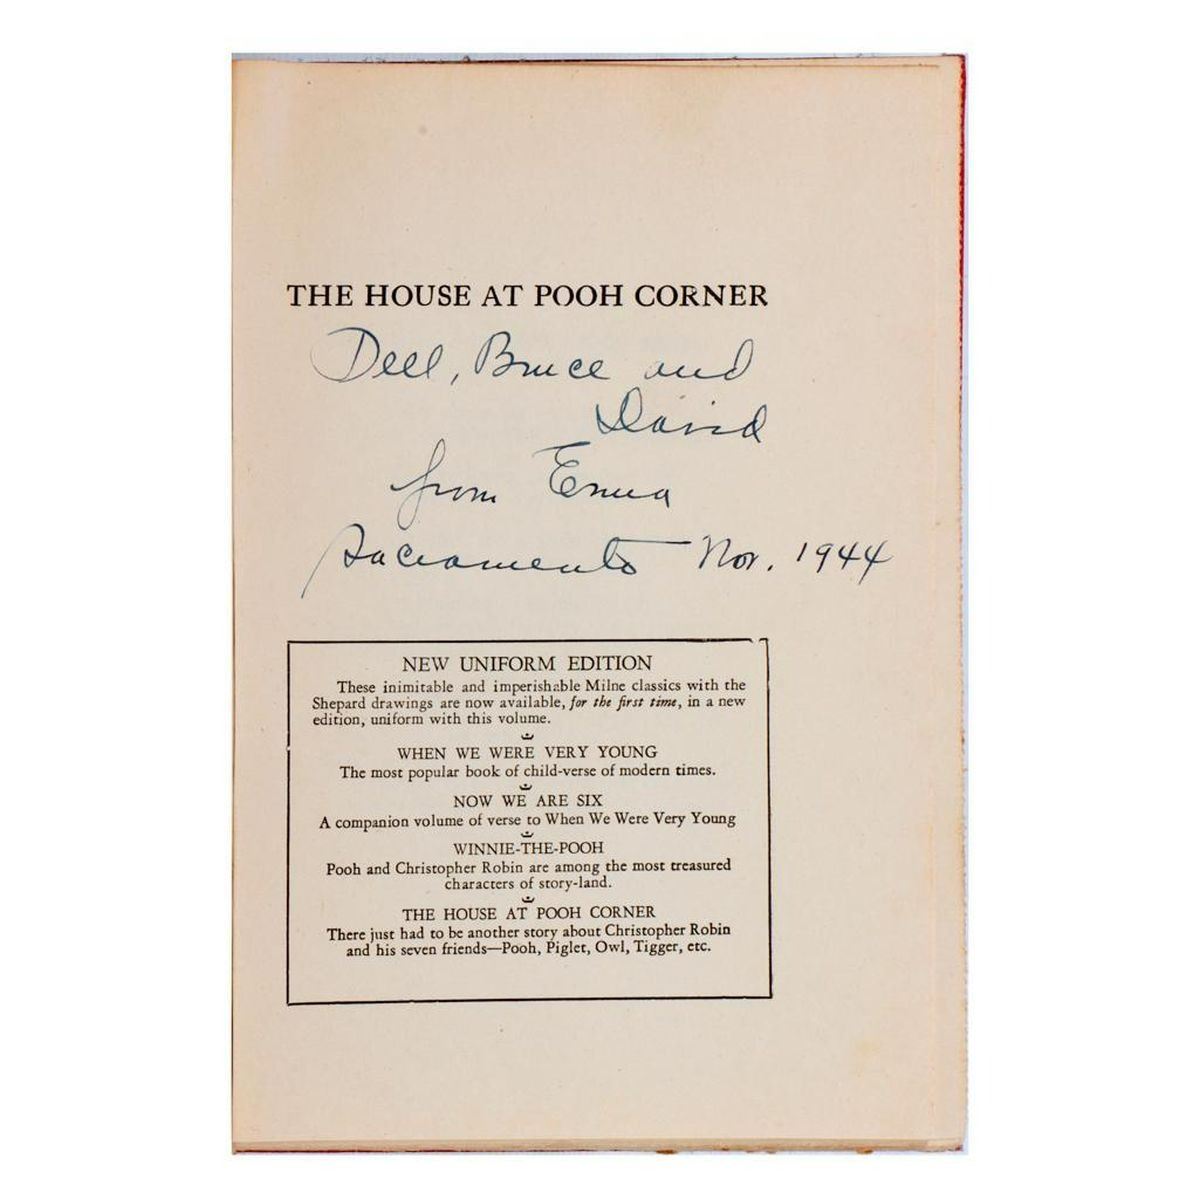 THE HOUSE AT POOH CORNER
Dell, Bruce and
David
from Erma
Sacramento Nov. 1944
NEW UNIFORM EDITION
These inimitable and imperishable Milne classics with the
Shepard drawings are now available, for the first time, in a new
edition, uniform with this volume.
WHEN WE WERE VERY YOUNG
The most popular book of child-verse of modern times.
NOW WE ARE SIX
A companion volume of verse to When We Were Very Young
WINNIE-THE-POOH
Pooh and Christopher Robin are among the most treasured
characters of story-land.
THE HOUSE AT POOH CORNER
There just had to be another story about Christopher Robin
and his seven friends—Pooh, Piglet, Owl, Tigger, etc.